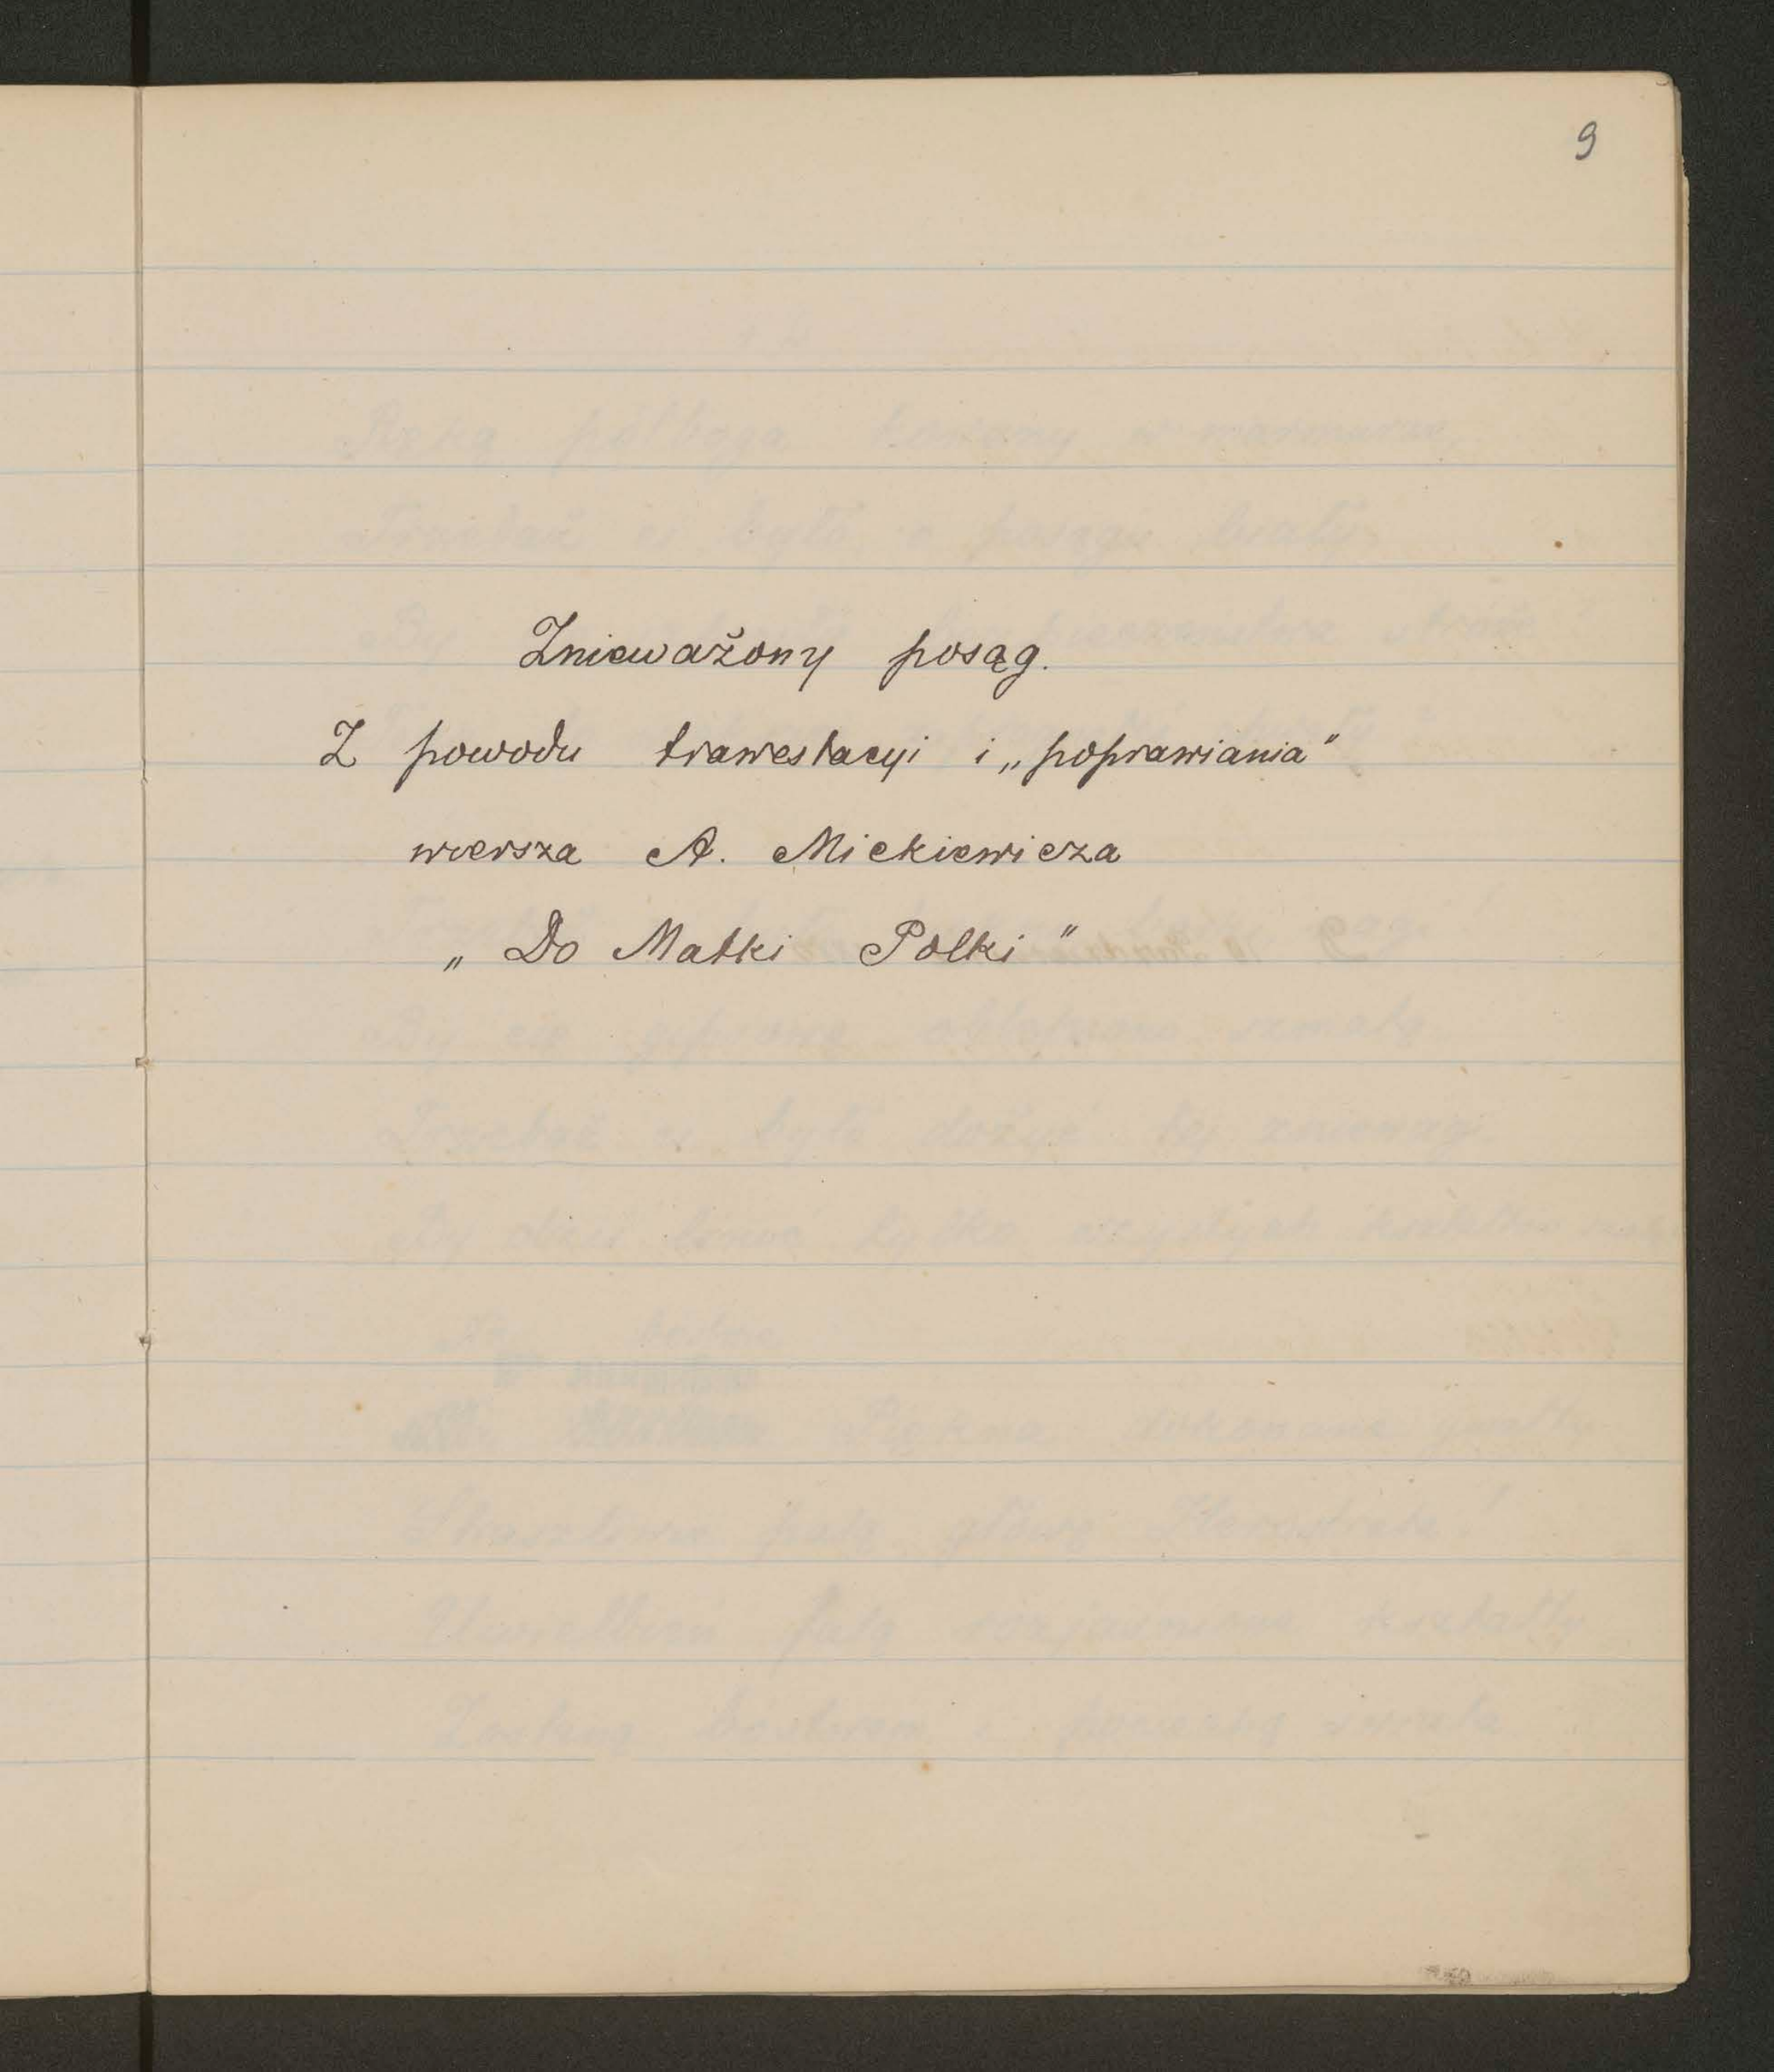 9
Znieważony posąg.
Z powodu trawestacyi i „poprawiania”
wiersza A. Mickiewicza
„Do Matki Polki”